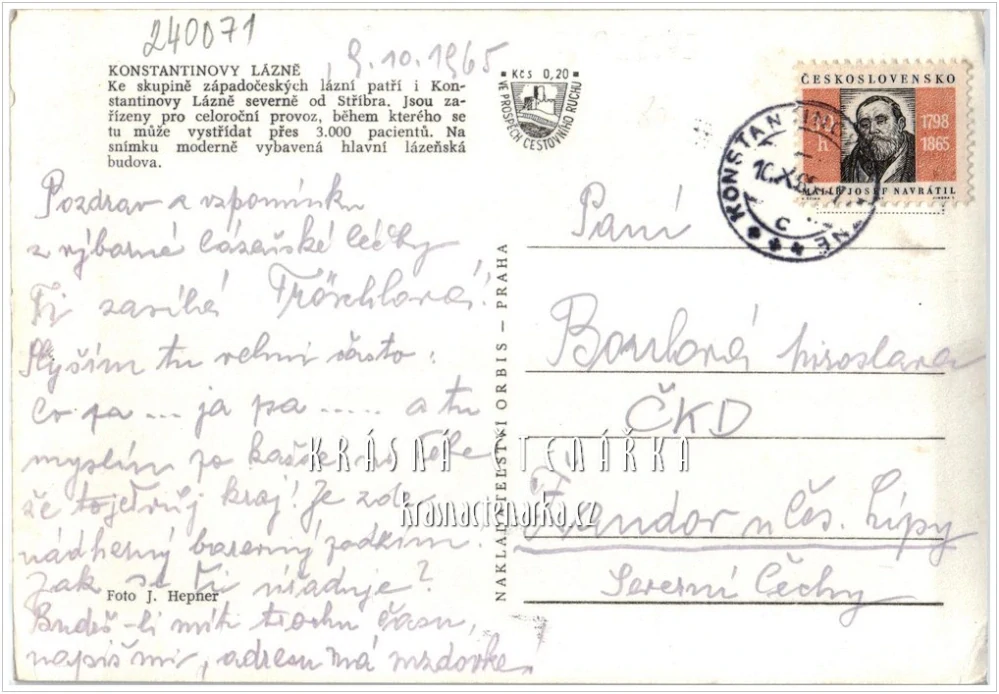 240071
, 9.10.1965
KONSTANTINOVY LÁZNĚ
Ke skupině západočeských lázní patří i Kon-
stantinovy Lázně severně od Stříbra. Jsou za-
řízeny pro celoroční provoz, během kterého se
tu může vystřídat přes 3.000 pacientů. Na
snímku moderně vybavená hlavní lázeňská
budova.
Kčs 0,20
VE PROSPĚCH CESTOVNÍHO RUCHU
ČESKOSLOVENSKO
h
1798
1865
MALÍŘ JOSEF NAVRÁTIL
KONSTANTINOVY LÁZNĚ
10.X.65
c
Pozdrav a vzpomínku
z výborné lázeňské léčby
Ti zasílá
Slyším tu velmi často:
Co pa ... ja pa ..... a tu
myslím po každé na Tebe
že to je tvůj kraj! Je zde
nádherný barevný podzim.
Jak se Ti úřaduje?
Budeš-li míti trochu času,
napiš mi, adresu má mzdovka!
Foto J. Hepner
NAKLADATELSTVÍ ORBIS — PRAHA
Paní
Miroslava
ČKD
n Čes. Lípy
Severní Čechy
KRÁSNÁ ČTENÁŘKA
krasnactenarka.cz